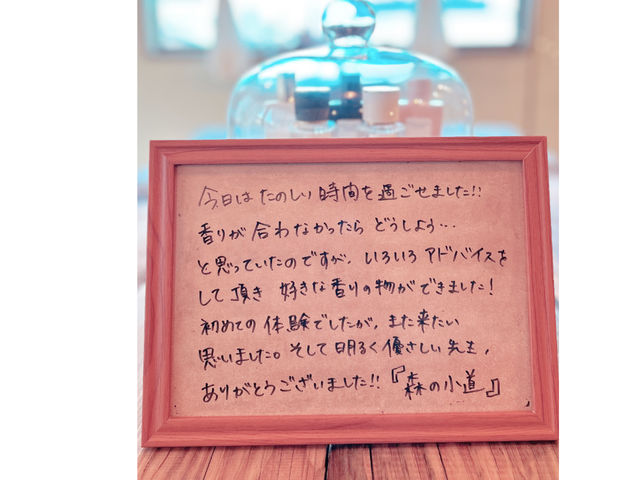 今日はたのしい時間を過ごせました!!
香りが合わなかったらどうしよう…
と思っていたのですが、いろいろアドバイスを
して頂き 好きな香りの物ができました!
初めての体験でしたが、また来たい
思いました。そして明るく優さしい先生,
ありがとうございました!!『森の小道』